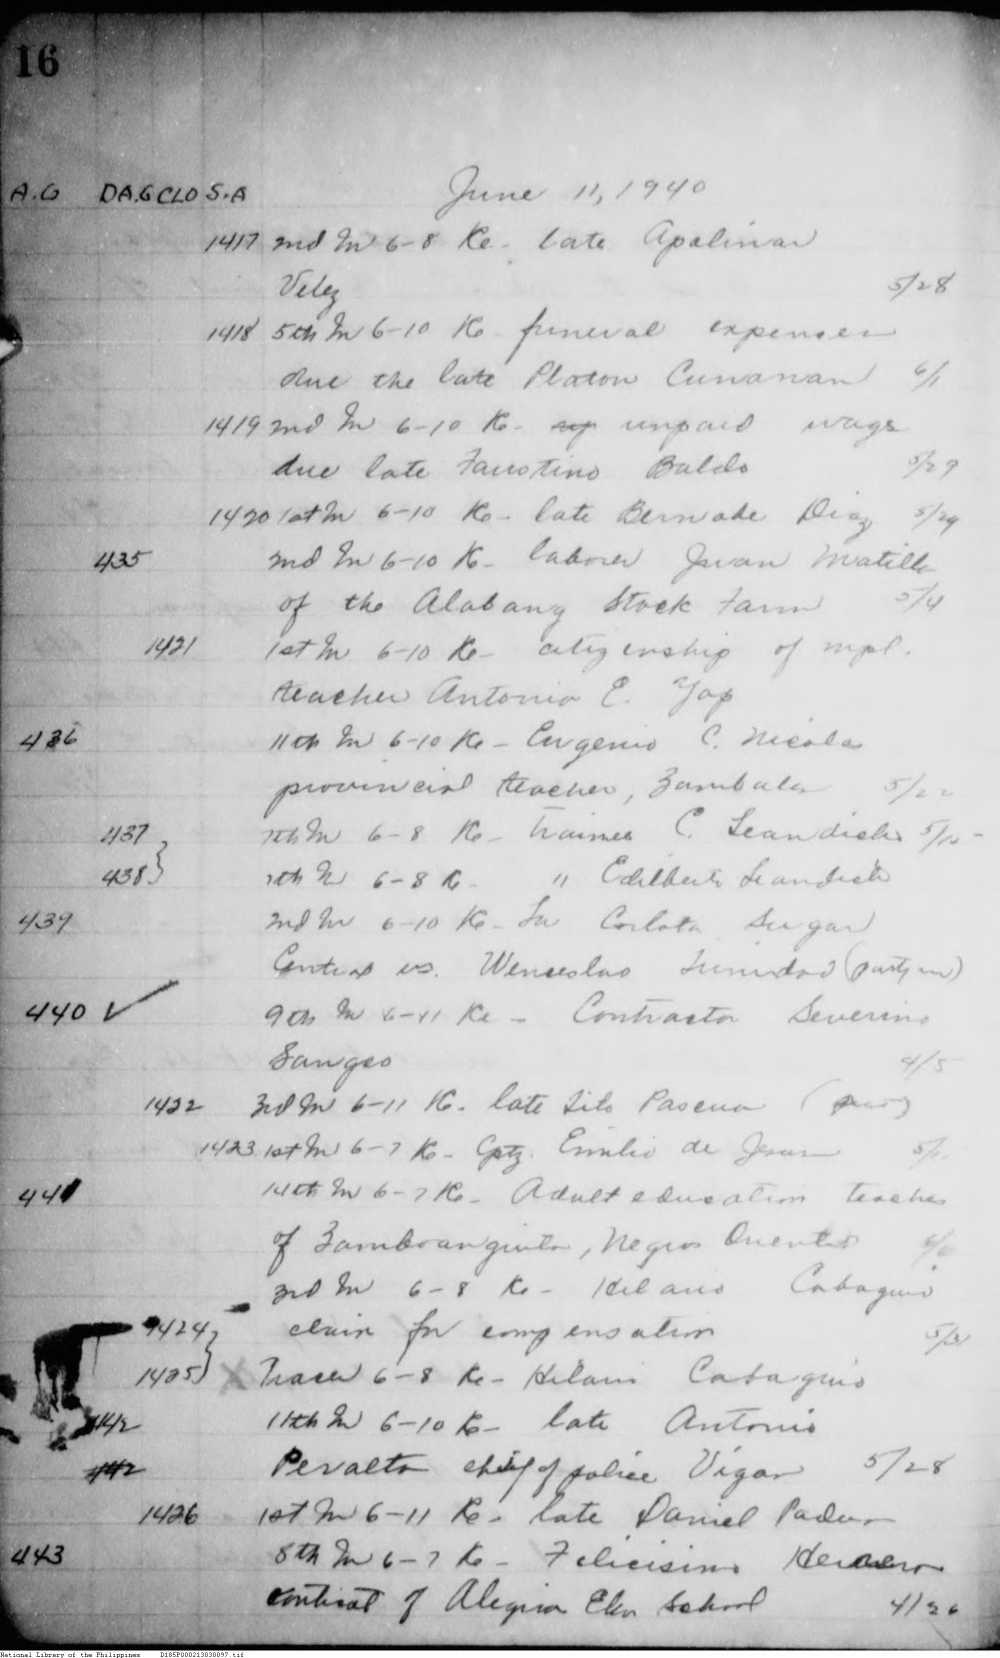 16
A.G DA.G CLO S.A June 11, 1940
1417 2nd In 6-8 Re- late Apolinar
Velez 5/28
1418 5th In 6-10 Re funeral expenses
due the late Platon Cunanan 6/1
1419 2nd In 6-10 Re- unpaid wages
due late Faustino Baldo 5/29
1420 1st In 6-10 Re- late Bernabe Diaz 5/29
435 2nd In 6-10 Re- laborer Juan Matilla
of the Alabang Stock Farm 5/4
1421 1st In 6-10 Re- citizenship of mpl.
teacher Antonio E. Yap
436 11th In 6-10 Re- Eugenio C. Nicolas
provincial teacher, Zambales 5/22
437 7th In 6-8 Re- trainee C. Leandicho
438 7th In 6-8 Re- " Edilberto Leandicho
439 2nd In 6-10 Re- La Carlota Sugar
Central vs. Wenceslao Trinidad
440 ✓ 9th In 6-11 Re- Contractor Severino
4/5
1422 3rd In 6-11 Re- late Tito Pascua
1423 1st In 6-7 Re- Cptz. Emilio de Jesus
441 14th In 6-7 Re- Adult education teacher
of Zamboanguita, Negros Oriental
3rd In 6-8 Re- Hilario Cabaguio
1424 claim for compensation
1425 Tracer 6-8 Re- Hilario Cabaguio
442 11th In 6-10 Re- late Antonio
442 Peralta chief of police Vigan 5/28
1426 1st In 6-11 Re- late Daniel Padua
443 8th In 6-7 Re- Felicisimo Herrero
contract of Alegria Elem School 4/26
National Library of the Philippines D185P000213030097.tif